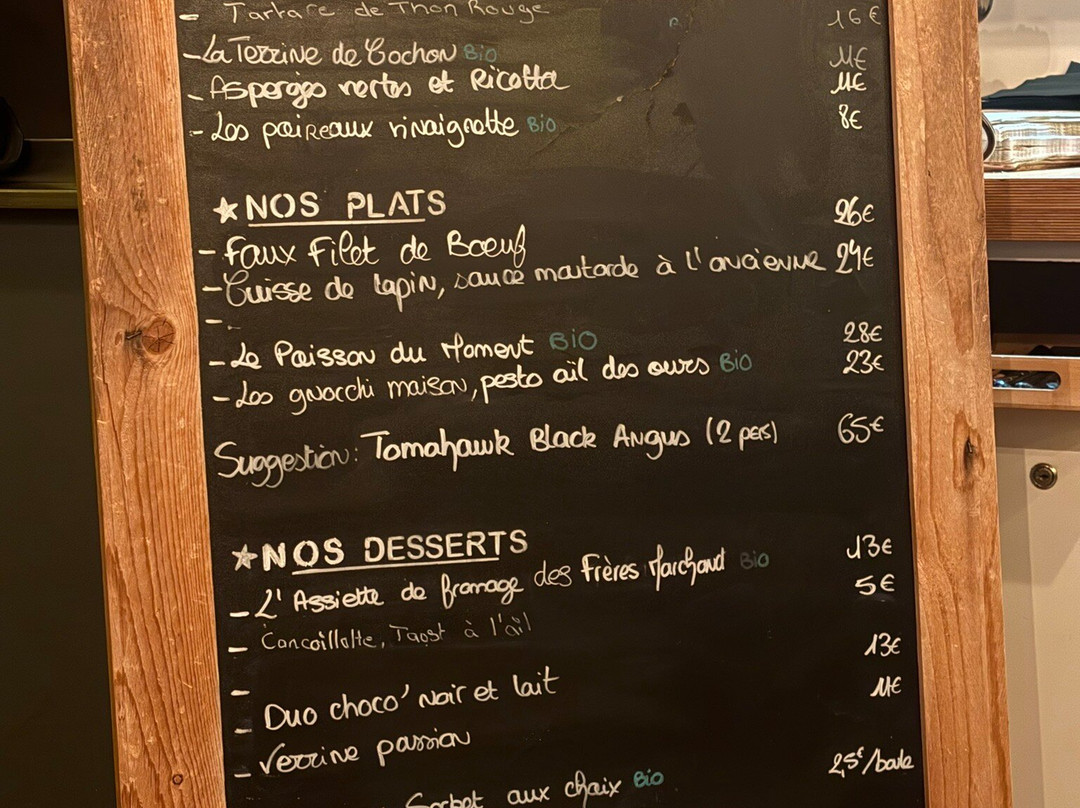 - Tartare de Thon Rouge 16€
- La Terrine de Cochon Bio 11€
- Asperges vertes et Ricotta 11€
- Les poireaux vinaigrette Bio 8€
★ NOS PLATS
- Faux Filet de Boeuf 26€
- Cuisse de lapin, sauce moutarde à l'ancienne 24€
- Le Poisson du Moment BIO 28€
- Les gnocchi maison, pesto ail des ours Bio 23€
Suggestion: Tomahawk Black Angus (2 pers) 65€
★ NOS DESSERTS
- L'Assiette de fromage des Frères Marchand Bio 13€
- Cancoillotte, Taost à l'ail 5€
- Duo choco' Noir et lait 13€
- Verrine passion 11€
- Sorbet aux choix Bio 2,5€/boule